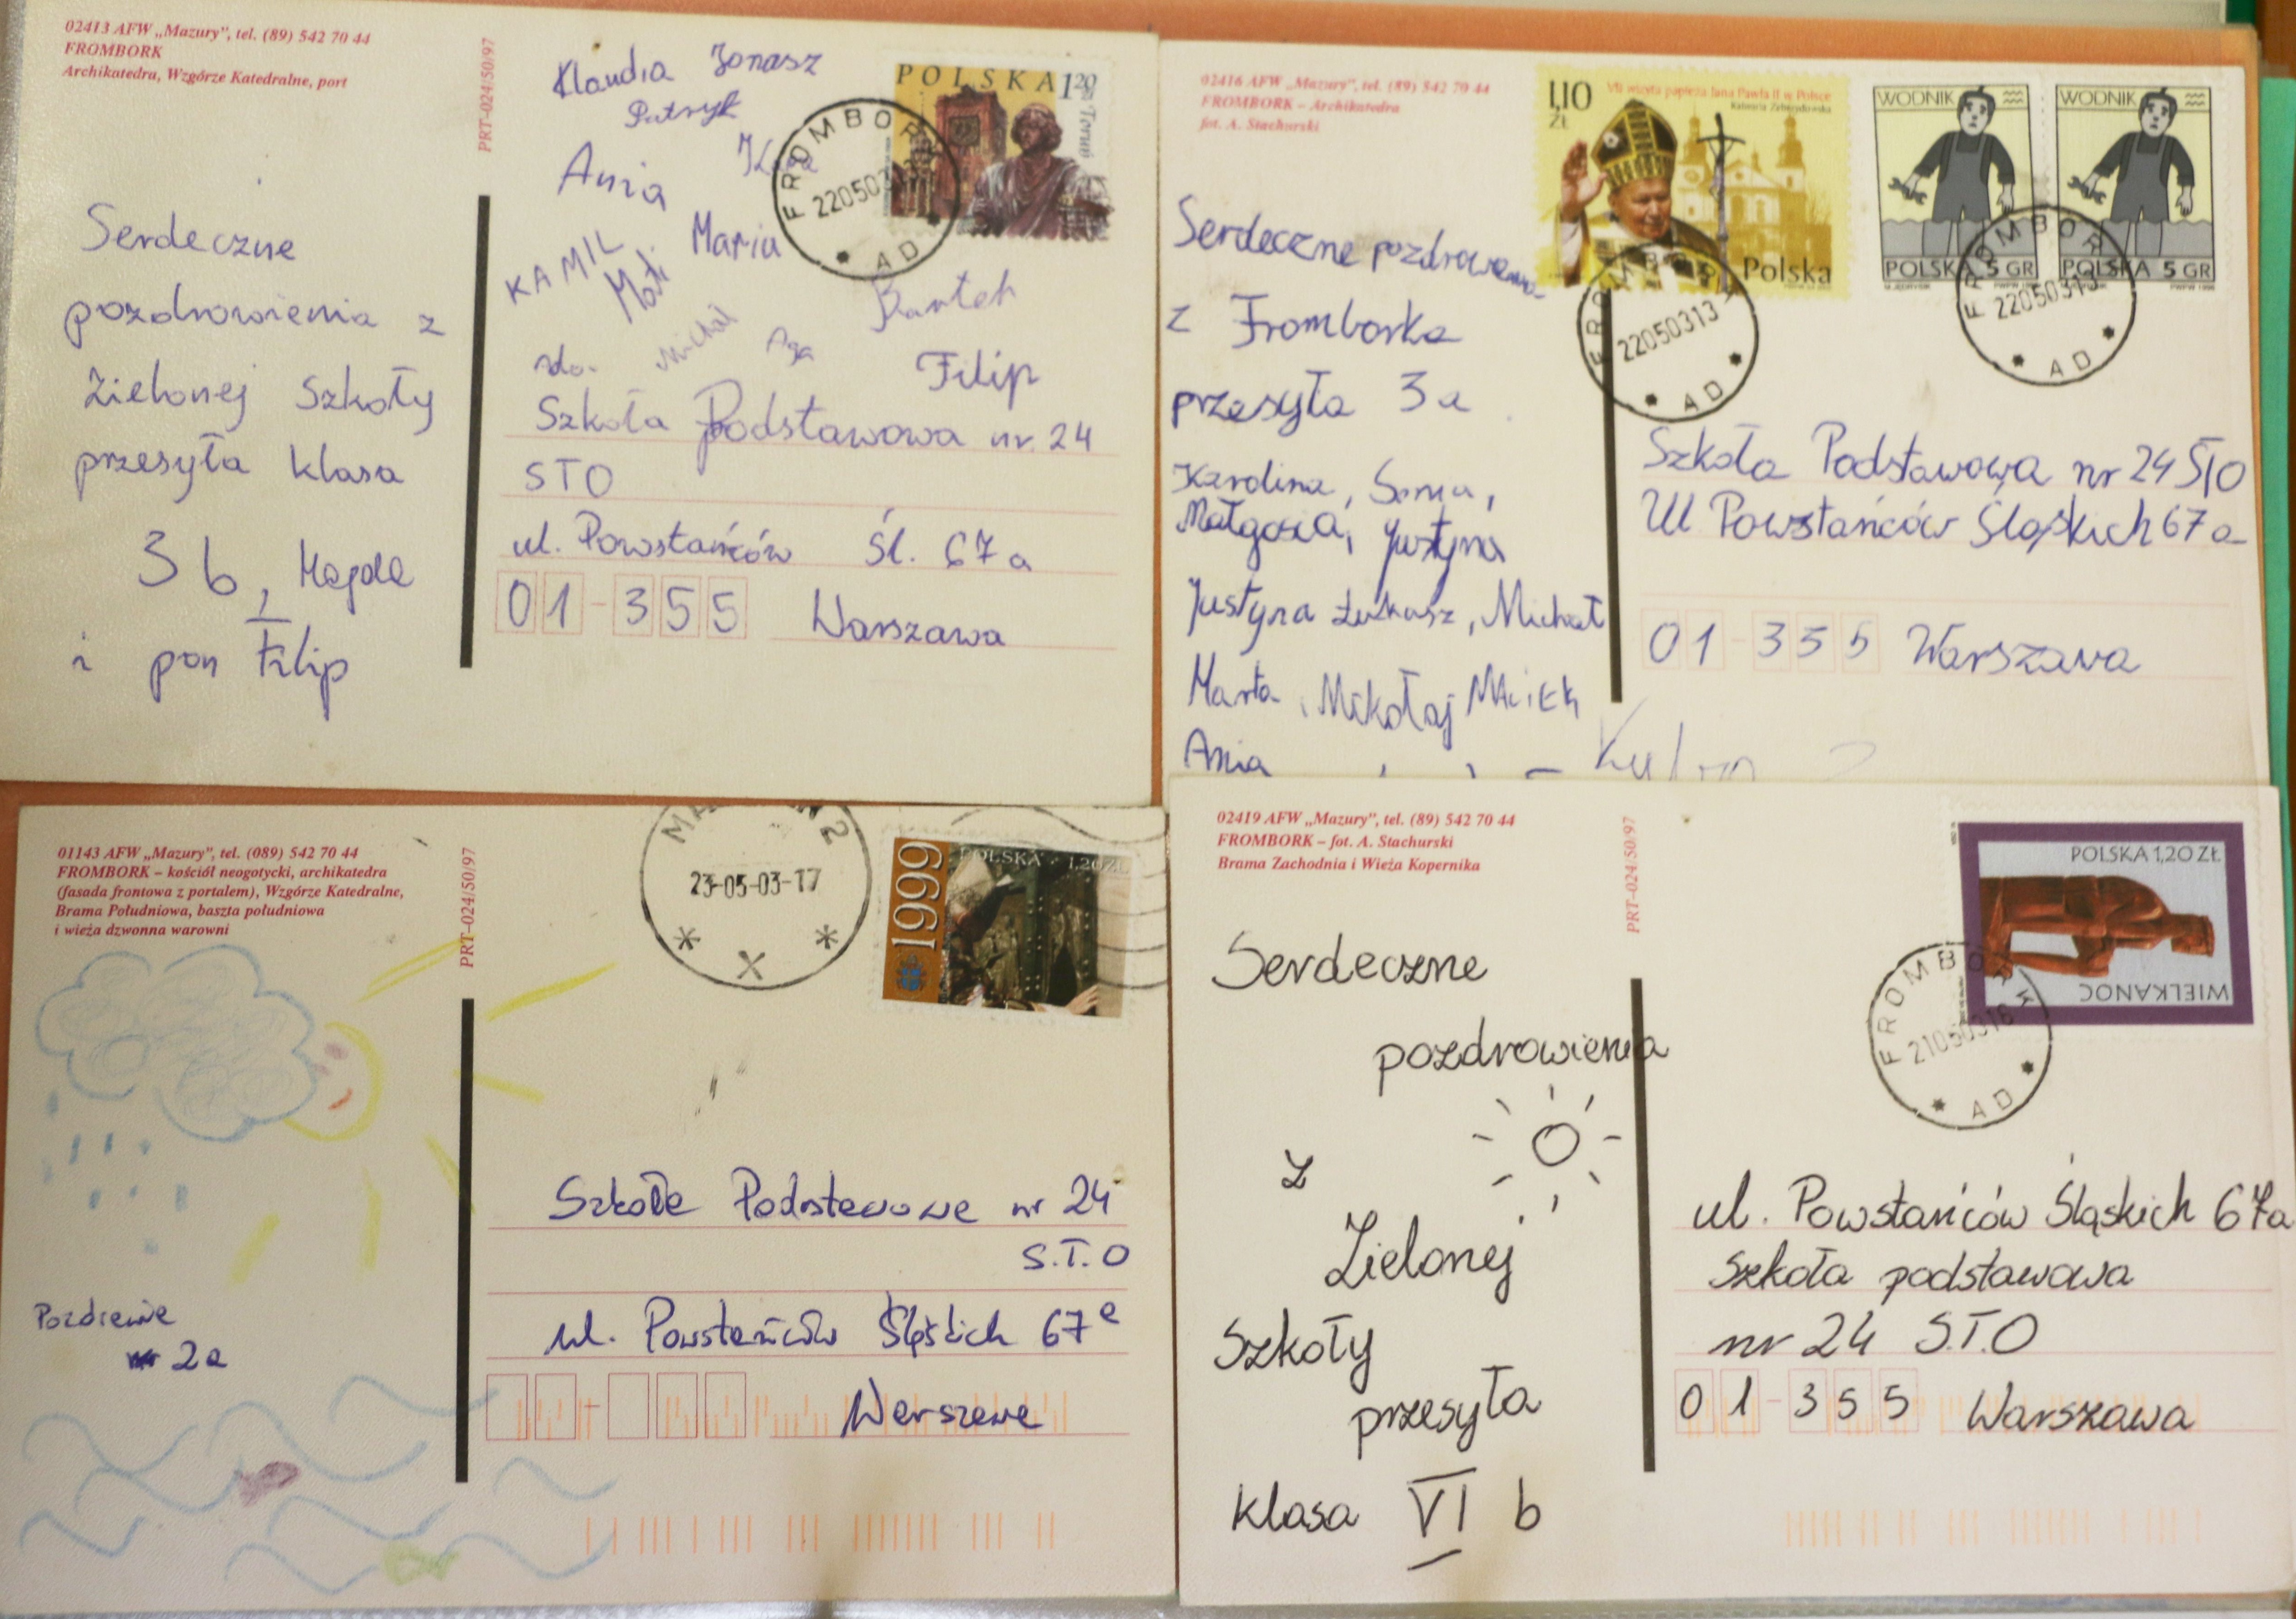 02413 AFW „Mazury", tel. (89) 542 70 44
FROMBORK
Archikatedra, Wzgórze Katedralne, port
PRT-024/50/97
Serdeczne
pozdrowienia z
Zielonej Szkoły
przesyła klasa
3 b, Magda
i pan Filip
Klaudia Jonasz
Patryk
Ania
KAMIL
Mati
Maria
Michał
Aga
Bartek
Filip
POLSKA 1 20
Toruń
FROMBORK
220503
AD
do.
Szkoła Podstawowa nr. 24
STO
ul. Powstańców Śl. 67a
01-355 Warszawa
02416 AFW „Mazury", tel. (89) 542 70 44
FROMBORK – Archikatedra
fot. A. Stachurski
1,10 ZŁ
VII wizyta papieża Jana Pawła II w Polsce
Kalwaria Zebrzydowska
Polska
WODNIK
POLSKA 5 GR
WODNIK
POLSKA 5 GR
FROMBORK
22050313
AD
FROMBORK
22050313
AD
Serdeczne pozdrowienia
z Fromborka
przesyła 3a
Karolina, Sonia,
Małgosia, Justyna
Justyna Łukasz, Michał
Marta, Mikołaj Maciek
Ania
Szkoła Podstawowa nr 24 STO
Ul Powstańców Śląskich 67a
01-355 Warszawa
01143 AFW „Mazury", tel. (089) 542 70 44
FROMBORK – kościół neogotycki, archikatedra
(fasada frontowa z portalem), Wzgórze Katedralne,
Brama Południowa, baszta południowa
i wieża dzwonna warowni
PRT-024/50/97
23-05-03-17
1999
POLSKA 1,20 ZŁ
2a
Szkoła Podstawowa nr 24
S.T.O
ul. Powstańców Śląskich 67a
Warszawa
02419 AFW „Mazury", tel. (89) 542 70 44
FROMBORK – fot. A. Stachurski
Brama Zachodnia i Wieża Kopernika
PRT-024/50/97
POLSKA 1,20 ZŁ
WIELKANOC
FROMBORK
21050316
AD
Serdeczne
pozdrowienia
z
Zielonej
Szkoły
przesyła
klasa VI b
ul. Powstańców Śląskich 67a
Szkoła podstawowa
nr 24 S.T.O
01-355 Warszawa